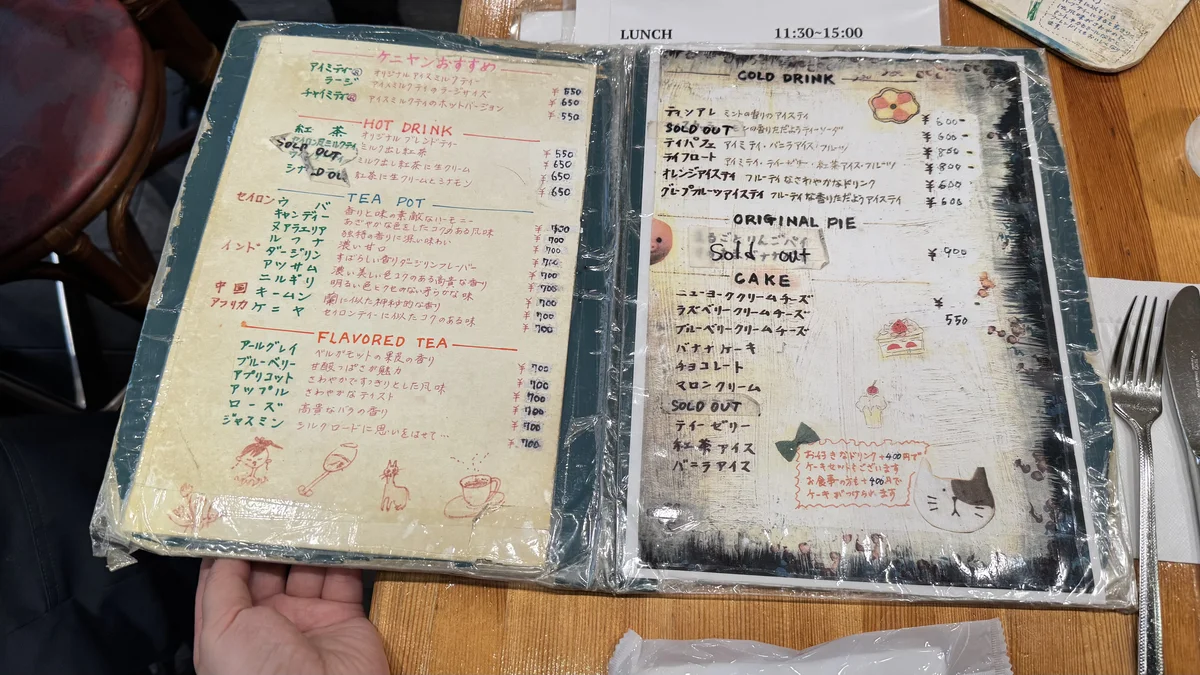 LUNCH 11:30~15:00
ケニヤンおすすめ
アイミティー オリジナルアイスミルクティー ¥550
ラージ アイスミルクティのラージサイズ ¥650
チャイミティ アイスミルクティのホットバージョン ¥550
HOT DRINK
紅茶 オリジナルブレンドティー ¥550
SOLD OUT ミルク出し紅茶 ¥650
ミルク出し紅茶に生クリーム ¥650
シナ OLD OU 紅茶に生クリームとシナモン ¥650
TEA POT
セイロン ウバ 香りと味の素敵なハーモニー ¥700
キャンディー あざやかな色をしたコクのある風味 ¥700
ヌアラエリア 独特の香りに深い味わい ¥700
ルフナ 濃い甘口 ¥700
インド ダージリン すばらしい香りダージリンフレーバー ¥700
アッサム 濃い美しい色コクのある高貴な香り ¥700
ニルギリ 明るい色とクセのない柔らかな味 ¥700
中国 キームン 蘭に似た神秘的な香り ¥700
アフリカ ケニヤ セイロンティーに似たコクのある味 ¥700
FLAVORED TEA
アールグレイ ベルガモットの果皮の香り ¥700
ブルーベリー 甘酸っぱさが魅力 ¥700
アプリコット さわやかですっきりとした風味 ¥700
アップル さわやかなテイスト ¥700
ローズ 高貴なバラの香り ¥700
ジャスミン シルクロードに思いをはせて… ¥700
COLD DRINK
ティンアレ ミントの香りのアイスティ ¥600
SOLD OUT の香りただようティーソーダ ¥600
ティパフェ アイミティ・バニラアイス・フルーツ ¥850
ティフロート アイミティ・ティーゼリー・紅茶アイス・フルーツ ¥800
オレンジアイスティ フルーティなさわやかなドリンク ¥600
グレープフルーツアイスティ フルーティな香りただようアイスティ ¥600
ORIGINAL PIE
まるごとりんごパイ
Sold out ¥900
CAKE
ニューヨーククリームチーズ ¥550
ラズベリークリームチーズ
ブルーベリークリームチーズ
バナナケーキ
チョコレート
マロンクリーム
SOLD OUT
ティーゼリー
紅茶アイス
バニラアイス
お好きなドリンク+400円で
ケーキセットもございます
お食事の方も+400円で
ケーキがつけられます